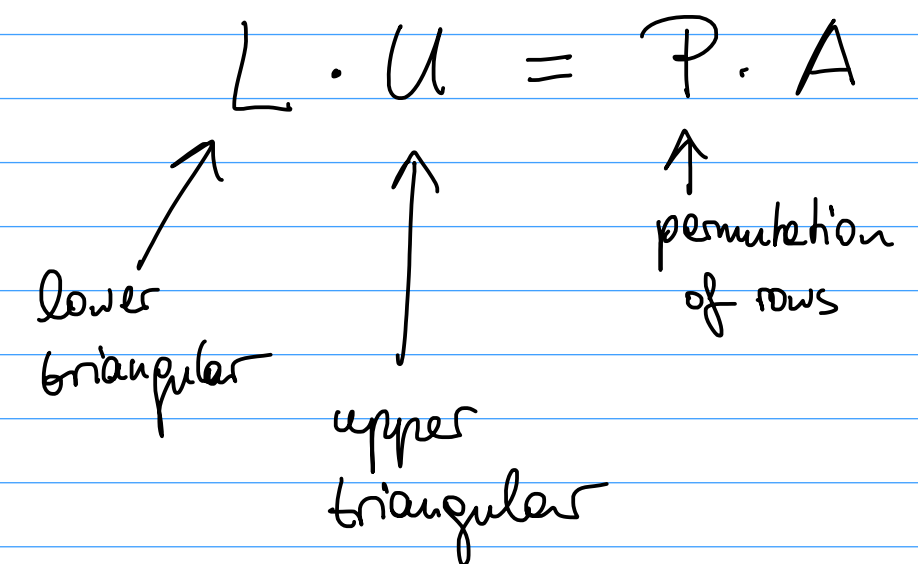 L · U = P · A
lower
triangular
upper
triangular
permutation
of rows